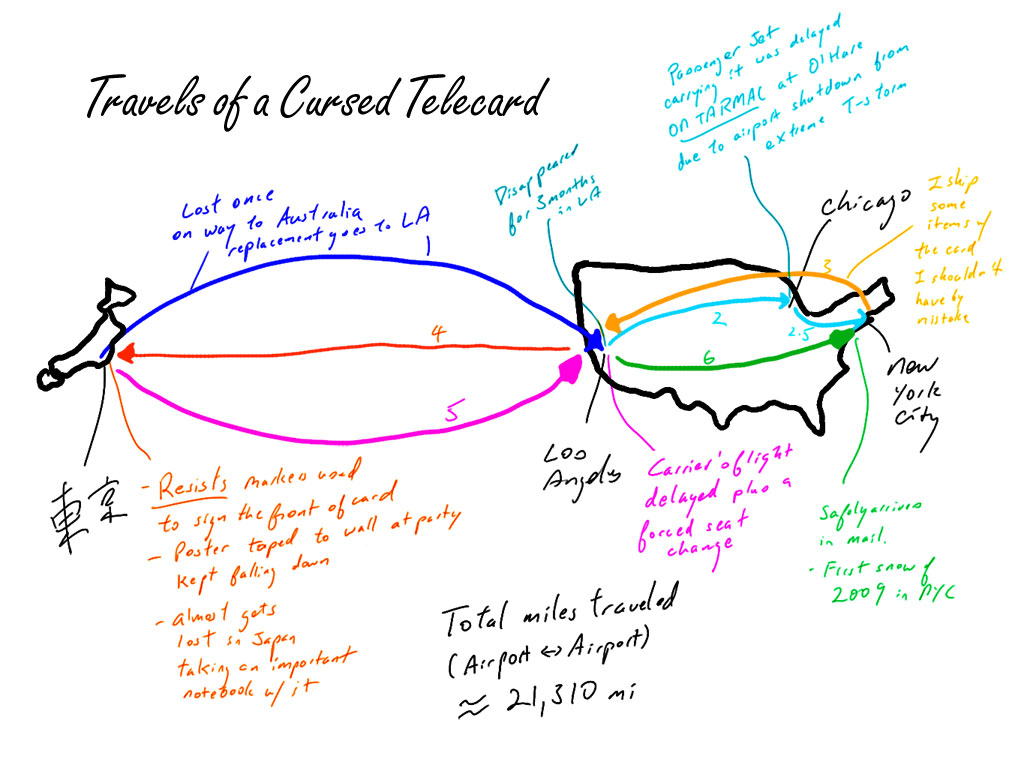 Travels of a Cursed Telecard
Passenger Jet
carrying it was delayed
on TARMAC at O'Hare
due to airport shutdown from
extreme T-storm
Disappeared
for 3 months
in LA
Lost once
on way to Australia
replacement goes to LA
Chicago
I ship
some
items w/
the card
I shouldn't
have by
mistake
3
2
2.5
4
6
5
New
York
City
Los
Angeles
東京
- Resists markers used
to sign the front of card
- Poster taped to wall at party
kept falling down
- almost gets
lost in Japan
taking an important
notebook w/ it
Carrier's flight
delayed plus a
forced seat
change
Safely arrives
in mail.
- First snow of
2009 in NYC
Total miles traveled
(Airport ↔ Airport)
≈ 21,310 mi